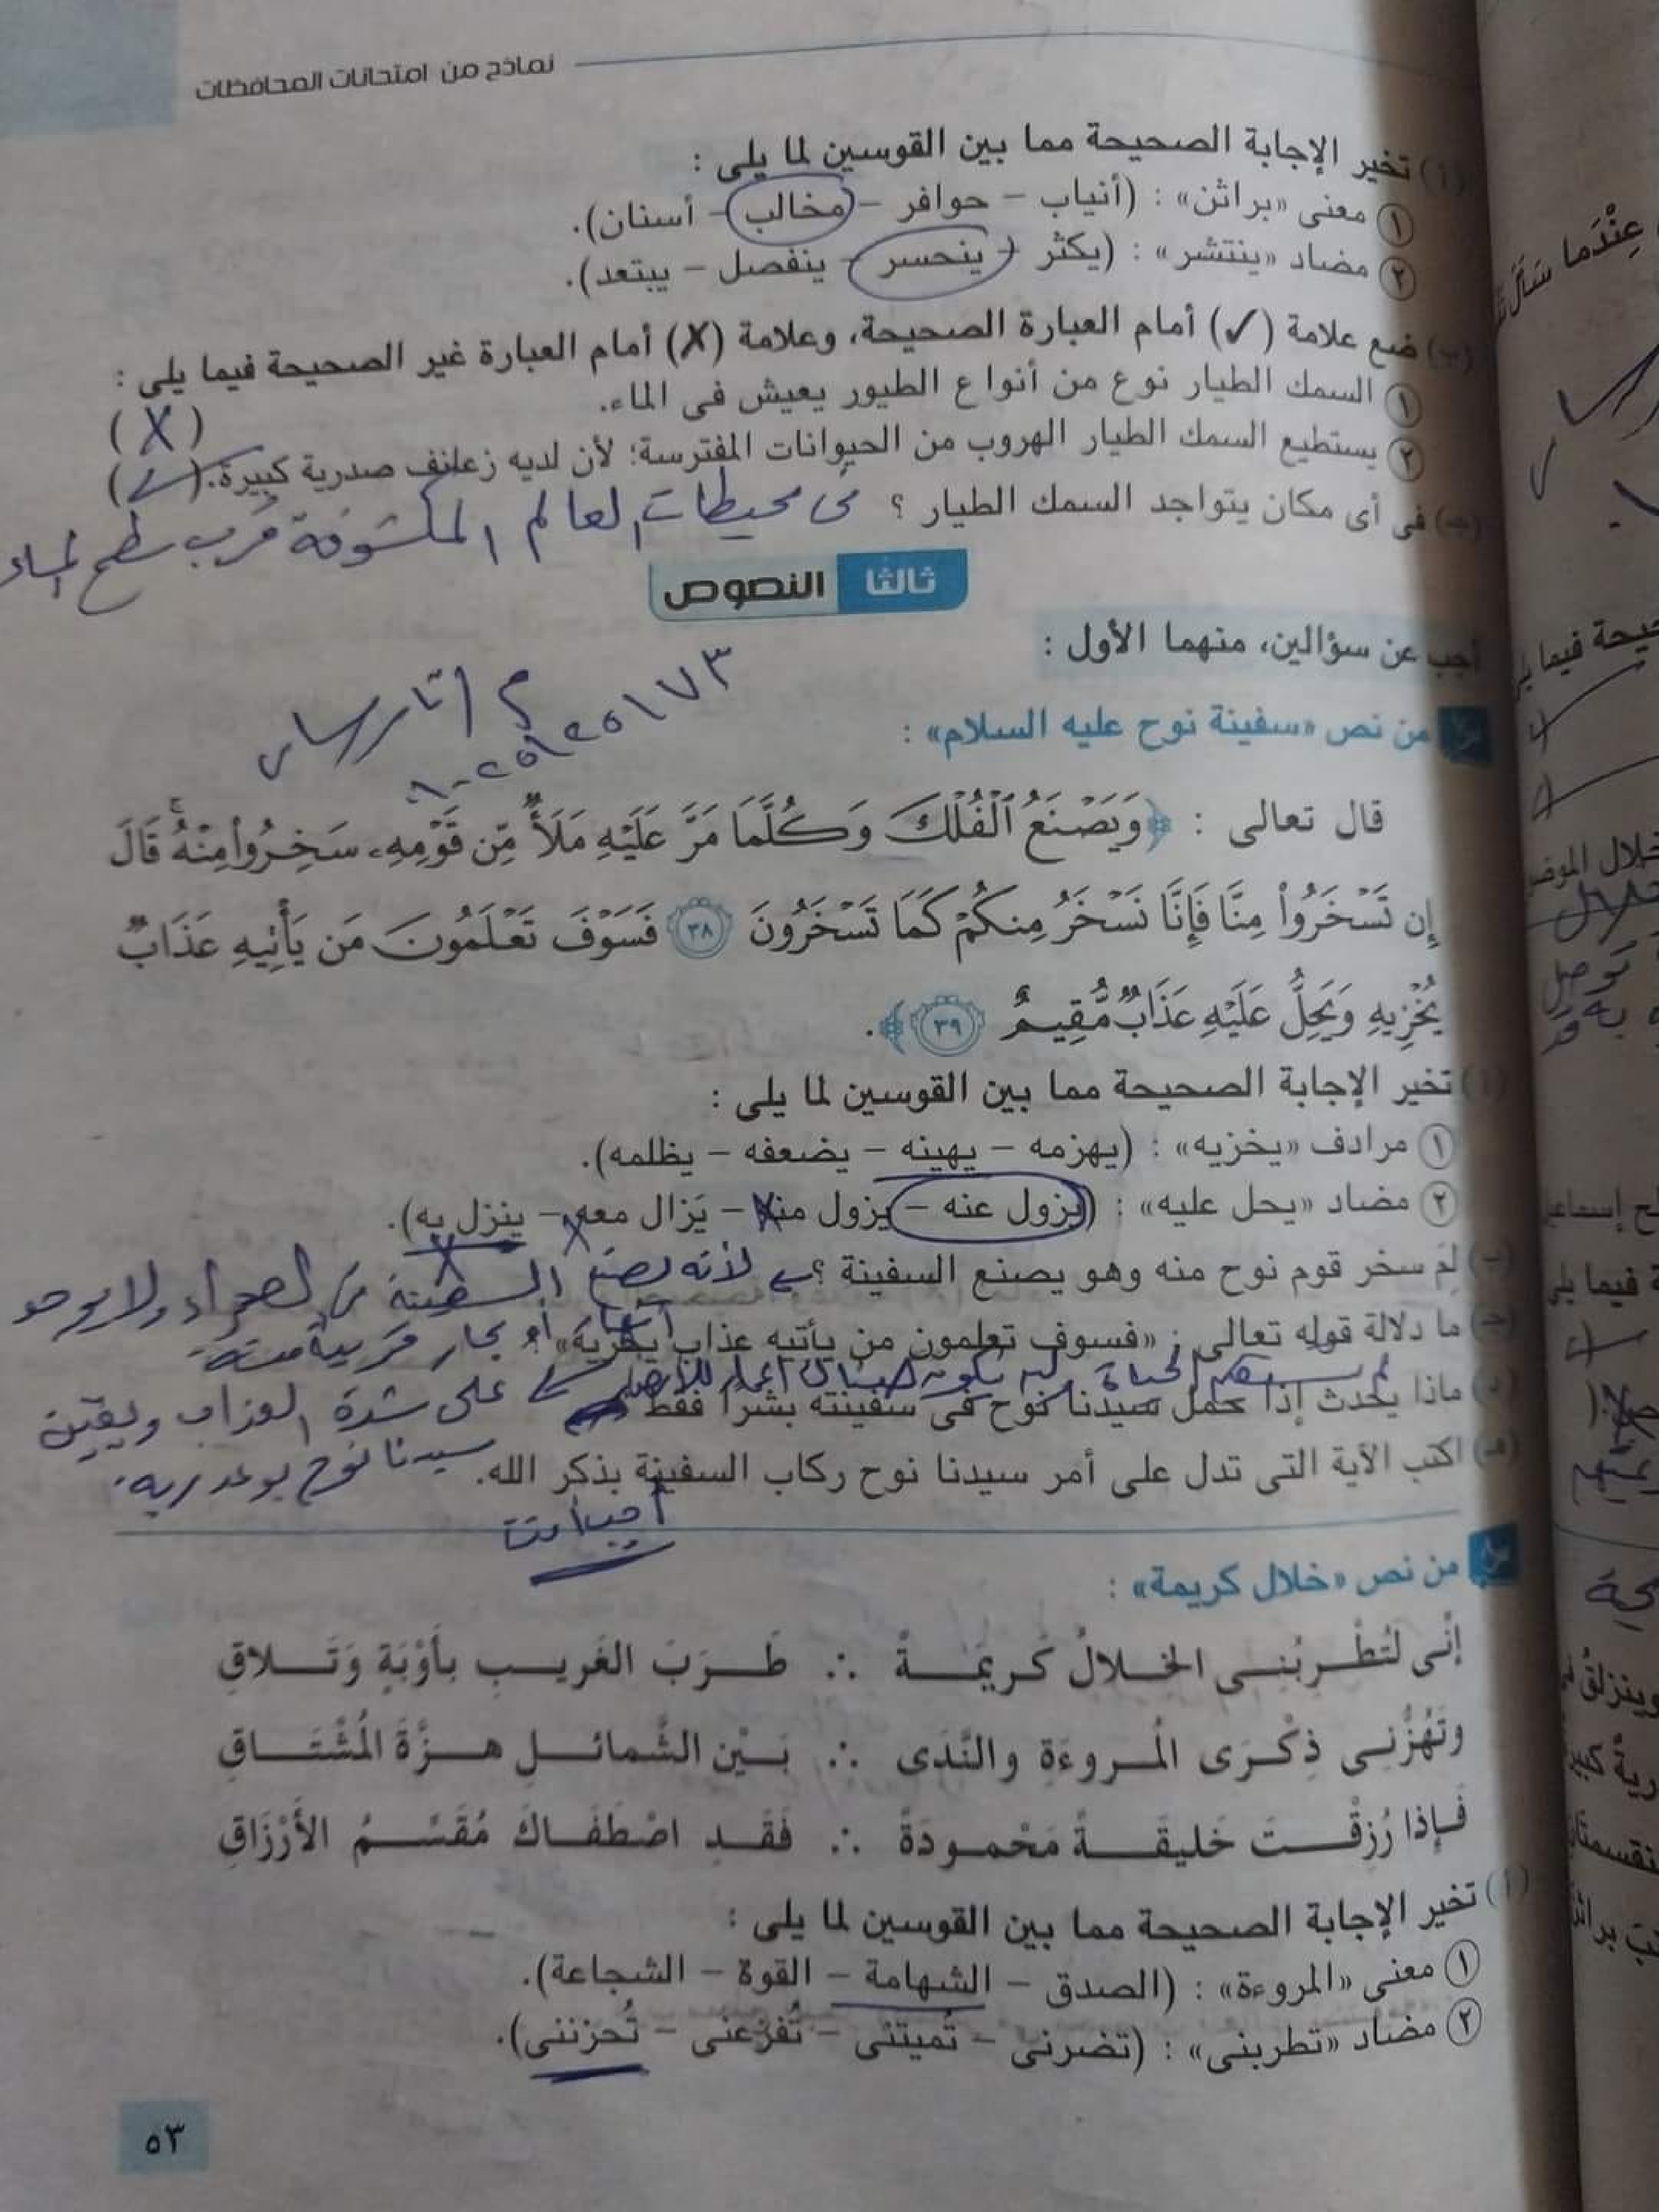 نماذج من امتحانات المحافظات
(أ) تخير الإجابة الصحيحة مما بين القوسين لما يلى :
١ معنى «براثن» : (أنياب – حوافر – مخالب – أسنان).
٢ مضاد «ينتشر» : (يكثر – ينحسر – ينفصل – يبتعد).
(ب) ضع علامة (✓) أمام العبارة الصحيحة، وعلامة (X) أمام العبارة غير الصحيحة فيما يلى :
١ السمك الطيار نوع من أنواع الطيور يعيش فى الماء. (X)
٢ يستطيع السمك الطيار الهروب من الحيوانات المفترسة؛ لأن لديه زعانف صدرية كبيرة. (✓)
(جـ) فى أى مكان يتواجد السمك الطيار ؟ فى محيطات العالم المكشوفة قرب سطح الماء
ثالثا النصوص
أجب عن سؤالين، منهما الأول :
من نص «سفينة نوح عليه السلام» :
قال تعالى : ﴿وَيَصْنَعُ ٱلْفُلْكَ وَكُلَّمَا مَرَّ عَلَيْهِ مَلَأٌ مِّن قَوْمِهِۦ سَخِرُوا۟ مِنْهُ ۚ قَالَ
إِن تَسْخَرُوا۟ مِنَّا فَإِنَّا نَسْخَرُ مِنكُمْ كَمَا تَسْخَرُونَ ٣٨ فَسَوْفَ تَعْلَمُونَ مَن يَأْتِيهِ عَذَابٌ
يُخْزِيهِ وَيَحِلُّ عَلَيْهِ عَذَابٌ مُّقِيمٌ ٣٩﴾.
(أ) تخير الإجابة الصحيحة مما بين القوسين لما يلى :
١ مرادف «يخزيه» : (يهزمه – يهينه – يضعفه – يظلمه).
٢ مضاد «يحل عليه» : (يزول عنه – يزول منه – يَزال معه – ينزل به).
(ب) لِمَ سخر قوم نوح منه وهو يصنع السفينة ؟ لأنه يصنع السفينة فى الصحراء ولا يوجد
أنهار أو بحار قريبة منه
(جـ) ما دلالة قوله تعالى : «فسوف تعلمون من يأتيه عذاب يخزيه» ؟
على شدة العذاب ويقين
سيدنا نوح بوعد ربه.
(د) ماذا يحدث إذا حمل سيدنا نوح فى سفينته بشرًا فقط
(هـ) اكتب الآية التى تدل على أمر سيدنا نوح ركاب السفينة بذكر الله.
أجب أنت
من نص «خلال كريمة» :
إنِّى لَتُطْرِبُنِى الخلالُ كَريمَةً ∴ طَرَبَ الغَريبِ بأَوْبَةٍ وَتَلاقِ
وتَهُزُّنِى ذِكْرَى المُروءَةِ والنَّدَى ∴ بَيْن الشَّمائلِ هزَّةَ المُشْتَاقِ
فَإِذا رُزِقْتَ خَليقَةً مَحْمودَةً ∴ فَقَدِ اصْطَفَاكَ مُقَسِّمُ الأَرْزَاقِ
(أ) تخير الإجابة الصحيحة مما بين القوسين لما يلى :
١ معنى «المروءة» : (الصدق – الشهامة – القوة – الشجاعة).
٢ مضاد «تطربنى» : (تضرنى – تميتنى – تُفزعنى – تُحزننى).
٥٣